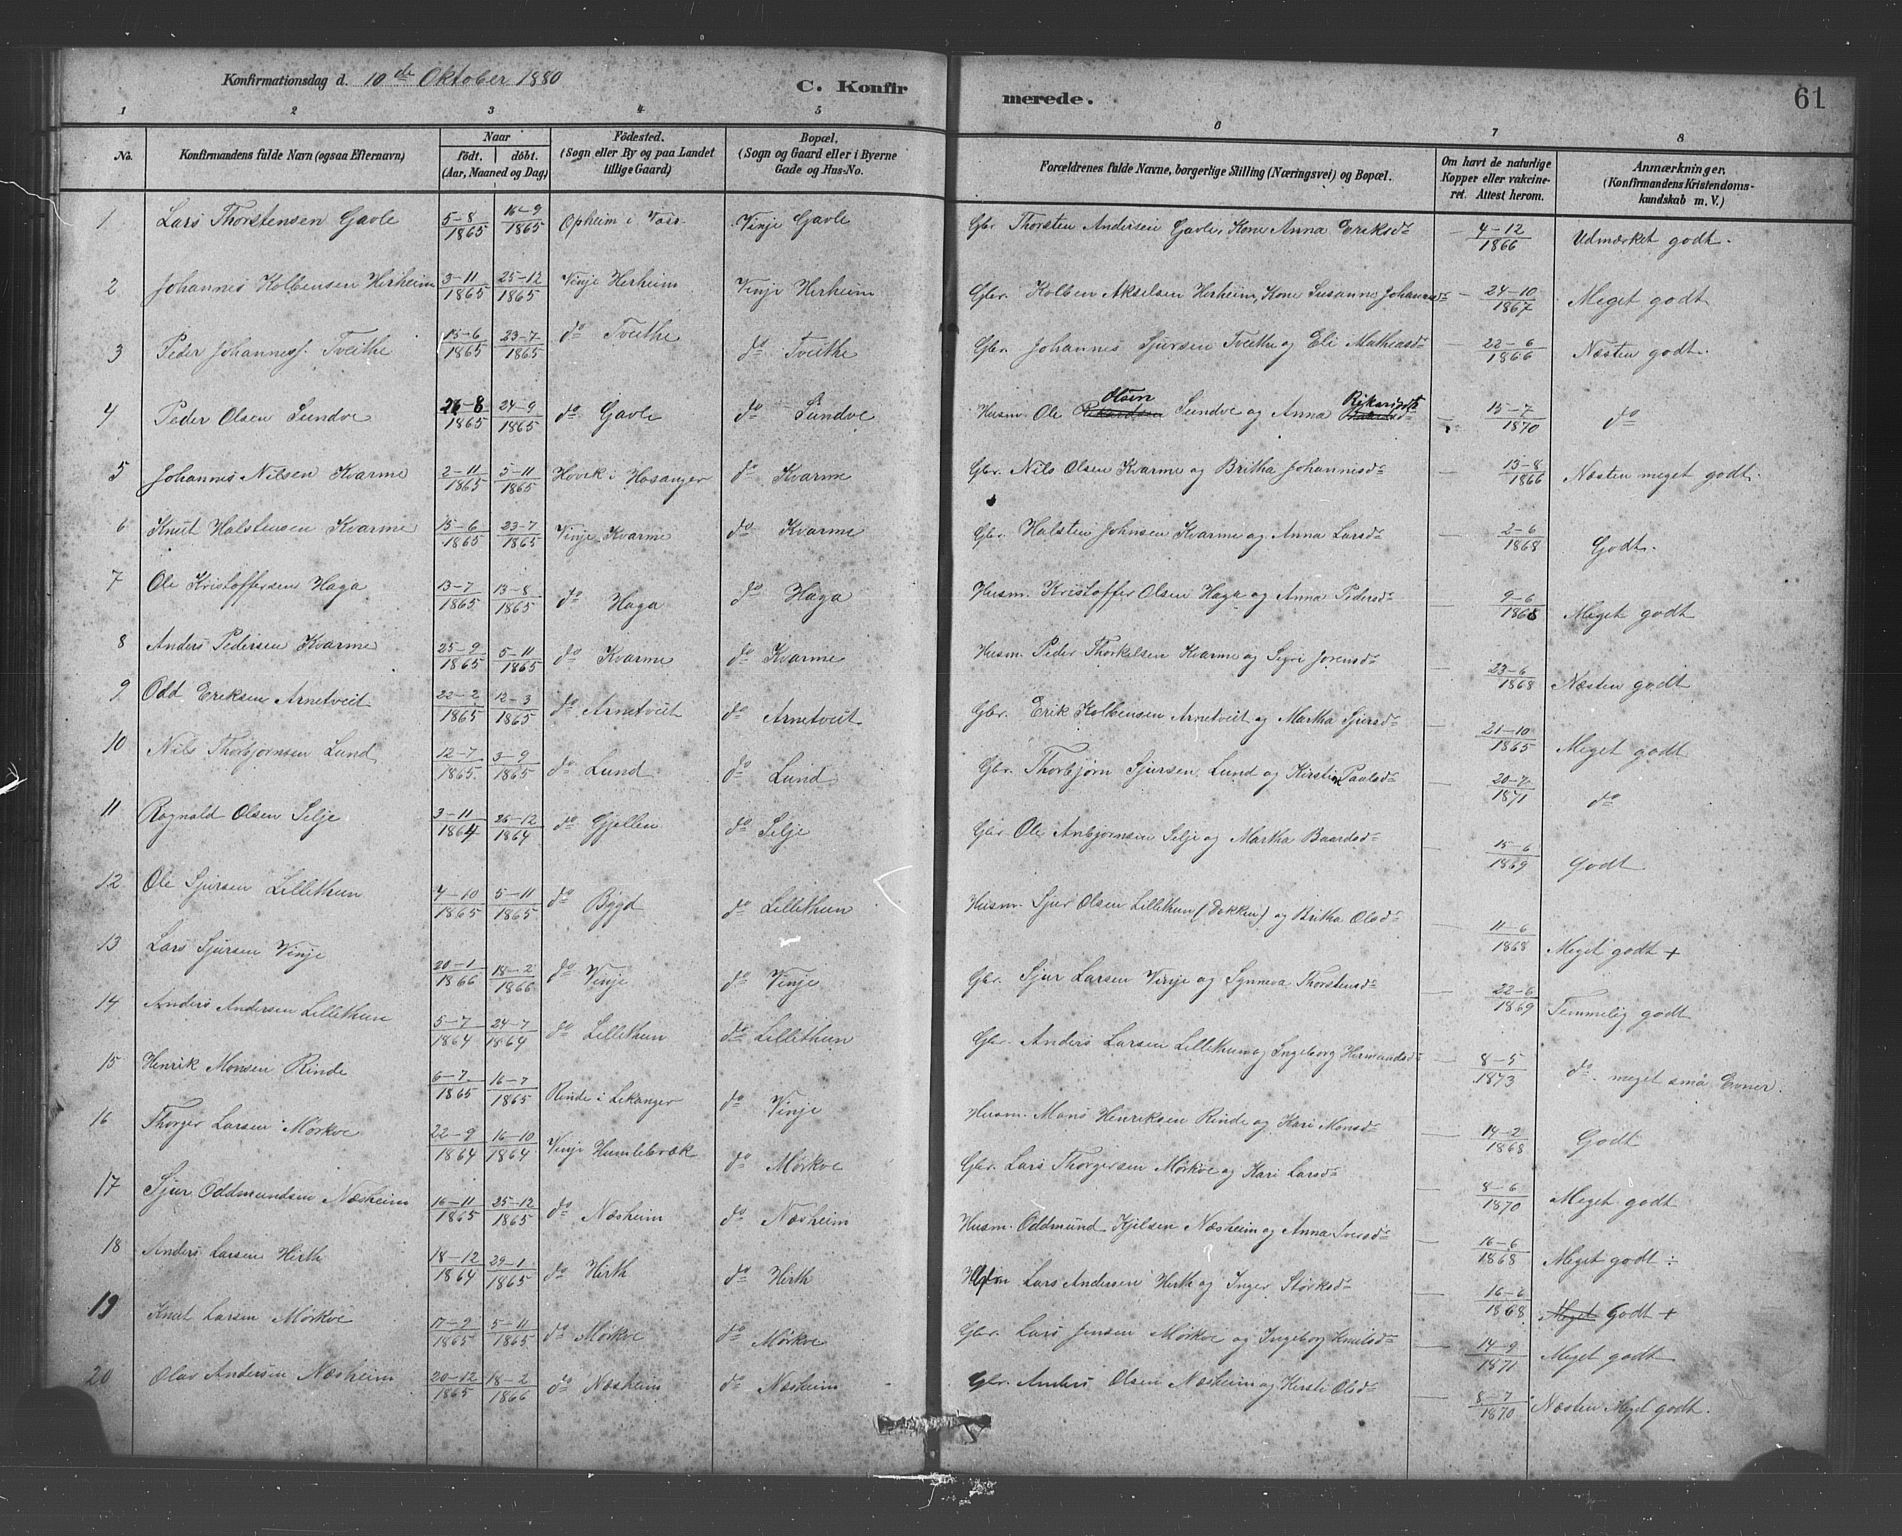 Konfirmationsdag d. 10de Oktober 1880 C. Konfirmerede. 61
1 2 3 4 5 6 7 8
No. Konfirmandens fulde Navn (ogsaa Efternavn) Naar födt. döbt. (Aar, Maaned og Dag) Födested. (Sogn eller By og paa Landet tillige Gaard) Bopæl. (Sogn og Gaard eller i Byerne Gade og Hus-No. Forældrenes fulde Navne, borgerlige Stilling (Næringsvei) og Bopæl. Om havt de naturlige Kopper eller vakcineret. Attest herom. Anmærkninger. (Konfirmandens Kristendomskundskab m. V.)
1 Lars Thorstensen Gavle 5-8 1865 16-9 1865 Opheim i Voss Vinje Gavle Gbr. Thorsten Andersen Gavle, Kone Anna Eriksdr — 4-12 1866 Udmærket godt.
2 Johannes Kolbensen Herheim 3-11 1865 25-12 1865 Vinje Herheim Vinje Herheim Gbr. Kolben Akselsen Herheim, Kone Susanne Johannesdr — 24-10 1867 Meget godt
3 Peder Johanness. Tveithe 15-6 1865 23-7 1865 do Tveithe do Tveithe Gbr. Johannes Sjursen Tveithe og Eli Mathiasdr — 22-6 1866 Næsten godt.
4 Peder Olsen Sundve 26-8 1865 24-9 1865 do Gavle do Sundve Husm. Ole Olsen Sundve og Anna Rikarsdr — 15-7 1870 do
5 Johannes Nilsen Kvarme 2-11 1865 5-11 1865 Hovik i Hosanger do Kvarme Gbr. Nils Olsen Kvarme og Britha Johannesdr — 15-8 1866 Næsten meget godt.
6 Knut Halstensen Kvarme 15-6 1865 23-7 1865 Vinje Kvarme do Kvarme Gbr. Halsten Johnsen Kvarme og Anna Larsdr — 2-6 1868 Godt.
7 Ole Kristoffersen Haga 13-7 1865 13-8 1865 do Haga do Haga Husm. Kristoffer Olsen Haga og Anna Pedersdr — 9-6 1868 Meget godt
8 Anders Pedersen Kvarme 25-9 1865 5-11 1865 do Kvarme do Kvarme Husm. Peder Thorkelsen Kvarme og Sigri Joensdr — 23-6 1868 Næsten godt
9 Odd Eriksen Arnetveit 22-2 1865 12-3 1865 do Arnetveit do Arnetveit Gbr. Erik Kolbensen Arnetveit og Martha Sjursdr — 21-10 1865 Meget godt
10 Nils Thorbjornsen Lund 12-7 1865 3-9 1865 do Lund do Lund Gbr. Thorbjørn Sjursen Lund og Kirstin Paalsdr — 20-7 1871 do
11 Ragnald Olsen Selje 3-11 1864 26-12 1864 do Gjellin do Selje Gbr. Ole Anbjornsen Selje og Martha Baardsdr — 15-6 1869 Godt
12 Ole Sjursen Lillethun 4-10 1865 5-11 1865 do Bygd do Lillethun Husm. Sjur Olsen Lillethun (Dokken) og Britha Olsdr — 11-6 1868 Meget godt +
13 Lars Sjursen Vinje 20-1 1866 18-2 1866 do Vinje do Vinje Gbr. Sjur Larsen Vinje og Synneva Thorstensdr — 22-6 1869 Temmelig godt
14 Anders Andersen Lillethun 5-7 1864 24-7 1864 do Lillethun do Lillethun Gbr. Anders Larsen Lillethun og Ingeborg Hermundsdr — 8-5 1873 do. meget små Evner.
15 Henrik Monsen Rinde 6-7 1865 16-7 1865 Rinde i Lekanger do Vinje Husm. Mons Henriksen Rinde og Kari Monsdr — 14-2 1868 Godt
16 Thorger Larsen Mørkve 22-9 1864 16-10 1864 Vinje Humlebræk do Mørkve Gbr. Lars Thorgersen Mørkve og Kari Larsdr — 8-6 1870 Meget godt
17 Sjur Oddmundsen Næsheim 16-11 1865 25-12 1865 do Næsheim do Næsheim Husm. Oddmund Kjelsen Næsheim og Anna Iversdr — 16-6 1868 Meget godt ÷
18 Anders Larsen Hirth 18-12 1864 29-1 1865 do Hirth do Hirth Lars Andersen Hirth og Inger Størksdr — 16-6 1868 Meget Godt +
19 Knut Larsen Mørkve 17-9 1865 5-11 1865 do Mørkve do Mørkve Gbr. Lars Jensen Mørkve og Ingeborg Knutsdr — 14-9 1871 Meget godt
20 Olav Andersen Næsheim 20-12 1865 18-2 1866 do Næsheim do Næsheim Gbr. Anders Olsen Næsheim og Kersti Olsdr — 8-7 1870 Næsten Meget godt.